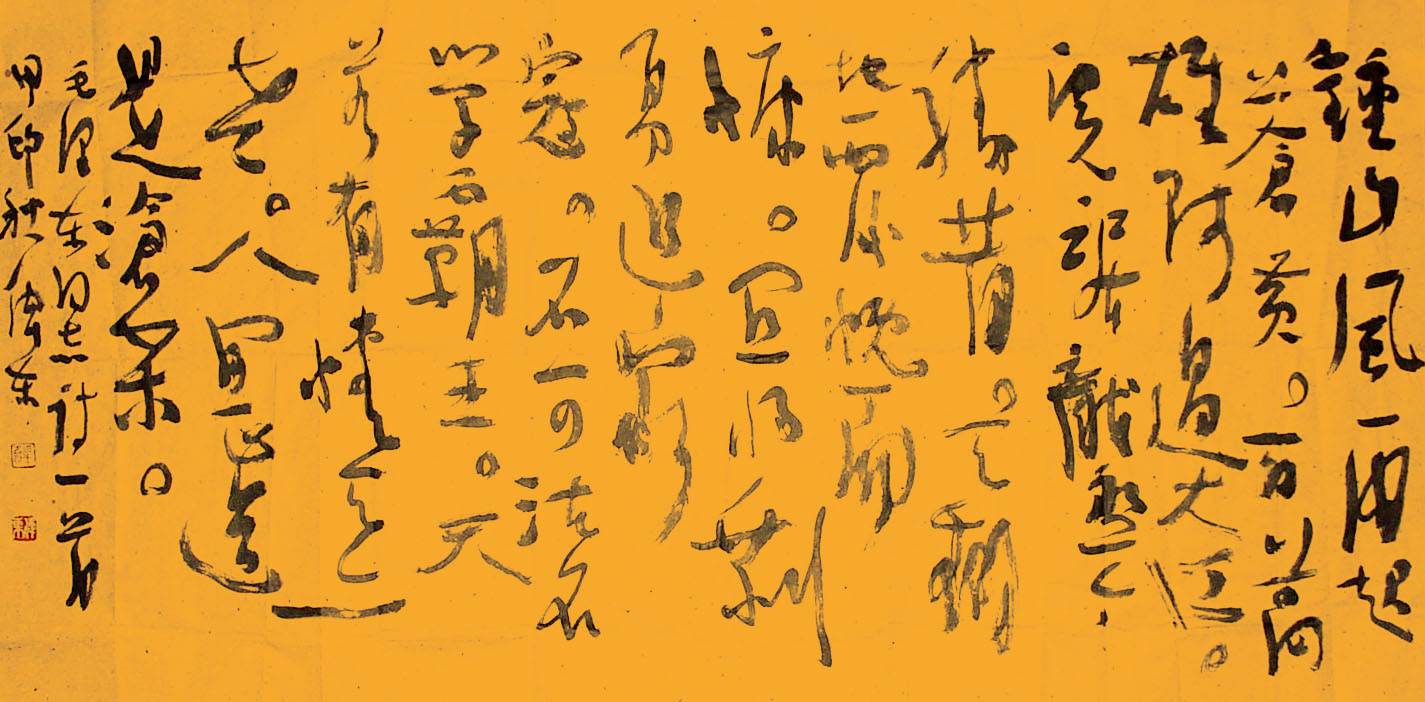 鍾山風雨起
蒼黃。百萬
雄師過大江。
虎踞龍盤今
勝昔。天翻
地覆慨而
慷。宜將剩
勇追窮
寇。不可沽名
學霸王。天
若有情天亦
老。人間正道
是滄桑。
毛澤東同志詩一首
甲申秋